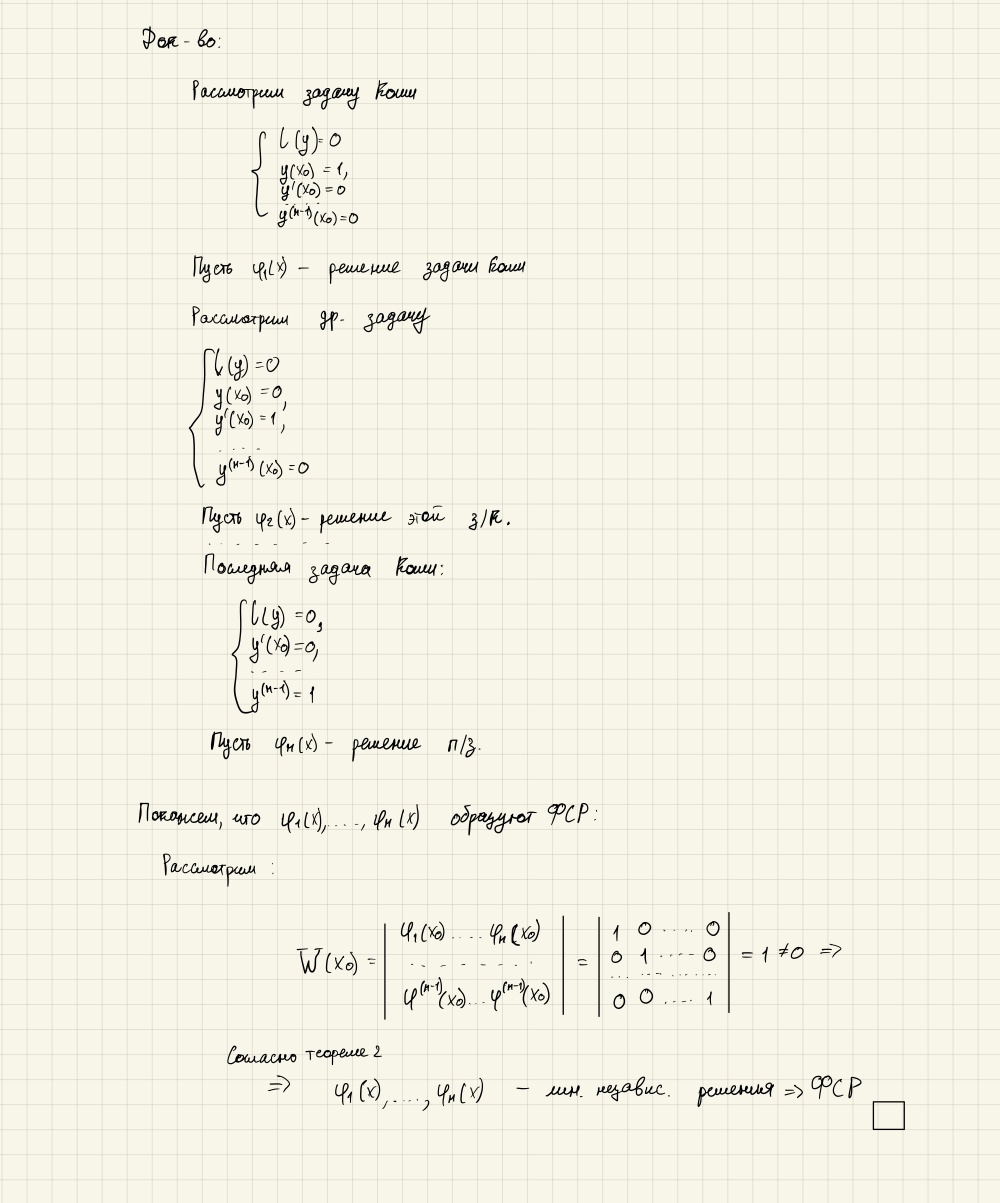 Док-во:
Рассмотрим задачу Коши
l(y)=0
y(x₀) = 1,
y'(x₀) = 0
. . . . .
y⁽ⁿ⁻¹⁾(x₀)=0
Пусть φ₁(x) – решение задачи Коши
Рассмотрим др. задачу
l(y) = 0
y(x₀) = 0,
y'(x₀) = 1,
. . . .
y⁽ⁿ⁻¹⁾(x₀) = 0
Пусть φ₂(x) – решение этой з/к.
. . . . . . . .
Последняя задача Коши:
l(y) = 0,
y'(x₀) = 0,
. . . .
y⁽ⁿ⁻¹⁾ = 1
Пусть φₙ(x) – решение п/з.
Покажем, что φ₁(x),...., φₙ(x) образуют ФСР:
Рассмотрим :
W(x₀) = | φ₁(x₀) .... φₙ(x₀) ; . . . . . . . ; φ⁽ⁿ⁻¹⁾(x₀)...φ⁽ⁿ⁻¹⁾(x₀) | = | 1 0 ..... 0 ; 0 1 ..... 0 ; .............. ; 0 0 .... 1 | = 1 ≠ 0 =>
Согласно теореме 2
=> φ₁(x),....., φₙ(x) – лин. независ. решения => ФСР